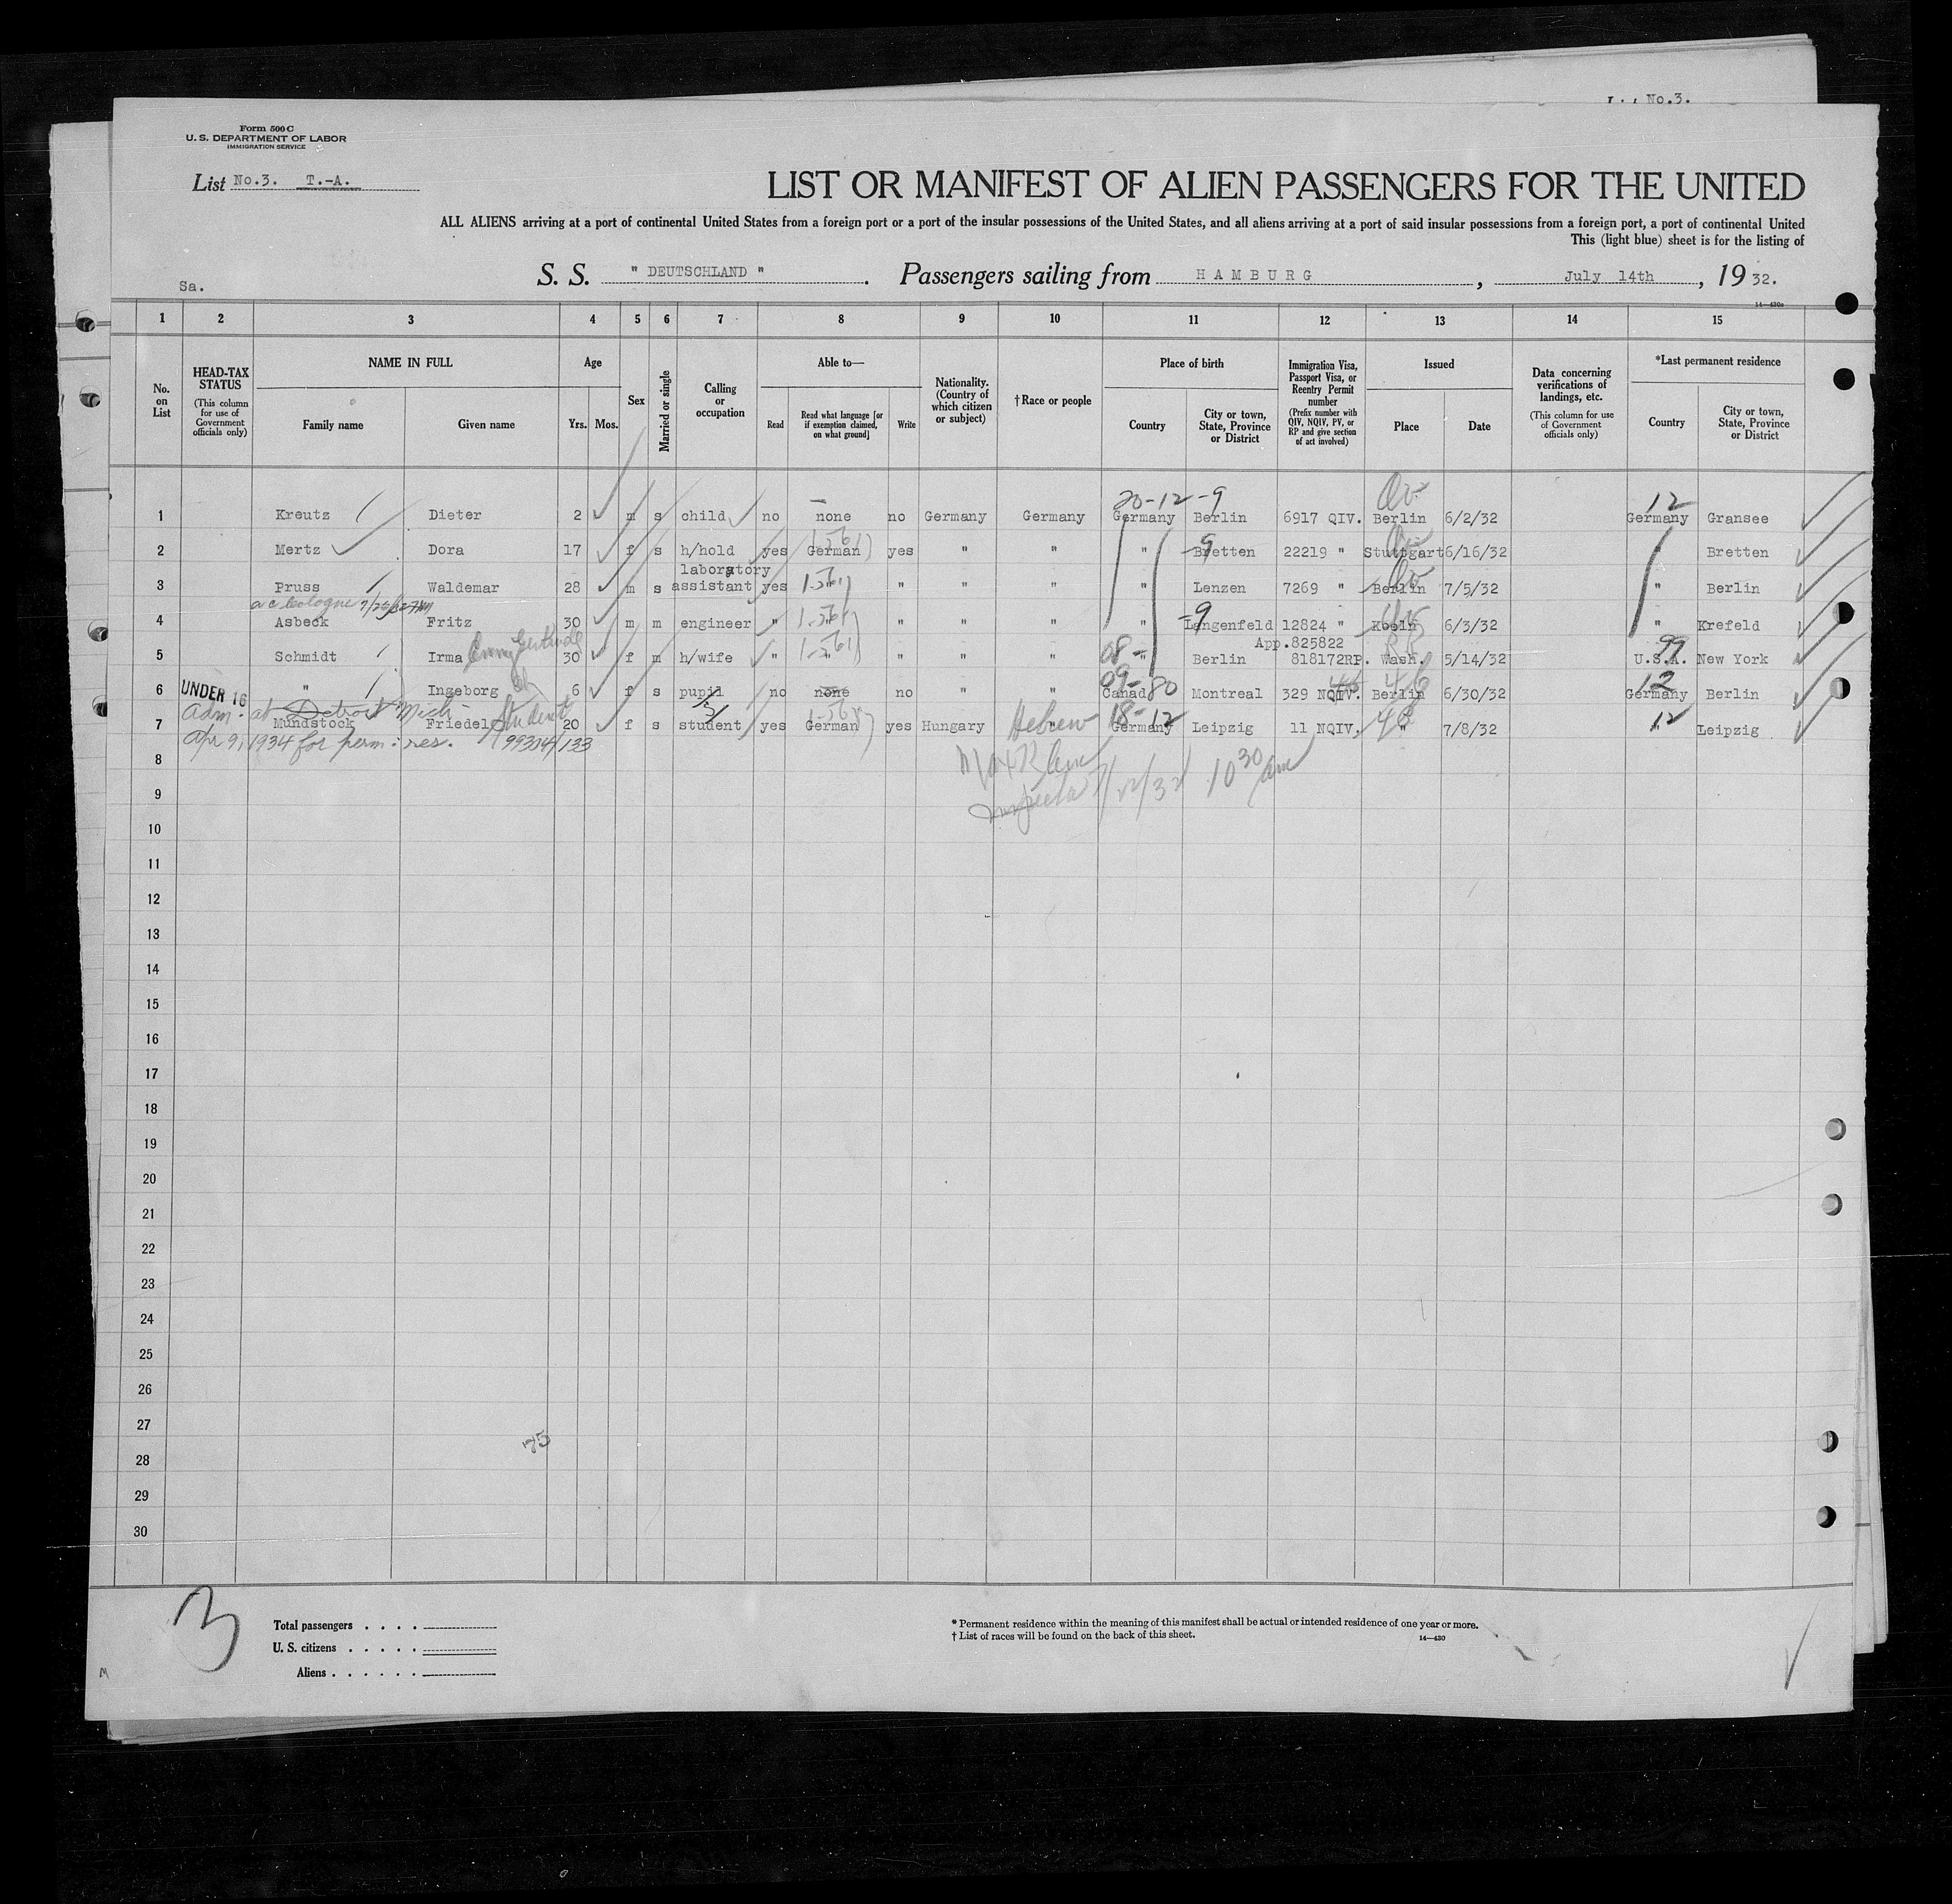 L.. No.3.
Form 500 C
U. S. DEPARTMENT OF LABOR
IMMIGRATION SERVICE
List No.3. T.-A.
LIST OR MANIFEST OF ALIEN PASSENGERS FOR THE UNITED
ALL ALIENS arriving at a port of continental United States from a foreign port or a port of the insular possessions of the United States, and all aliens arriving at a port of said insular possessions from a foreign port, a port of continental United
This (light blue) sheet is for the listing of
Sa. S. S. " DEUTSCHLAND " . Passengers sailing from HAMBURG , July 14th , 19 32.
14—430a
1 2 3 4 5 6 7 8 9 10 11 12 13 14 15
No. on List
HEAD-TAX STATUS (This column for use of Government officials only)
NAME IN FULL
Family name Given name
Age
Yrs. Mos.
Sex
Married or single
Calling or occupation
Able to—
Read Read what language [or if exemption claimed, on what ground] Write
Nationality. (Country of which citizen or subject)
†Race or people
Place of birth
Country City or town, State, Province or District
Immigration Visa, Passport Visa, or Reentry Permit number (Prefix number with QIV, NQIV, PV, or RP and give section of act involved)
Issued
Place Date
Data concerning verifications of landings, etc. (This column for use of Government officials only)
*Last permanent residence
Country City or town, State, Province or District
20-12-9 QV 12
1 Kreutz Dieter 2 m s child no none no Germany Germany Germany Berlin 6917 QIV. Berlin 6/2/32 Germany Gransee
2 Mertz Dora 17 f s h/hold yes German yes " " " -9 Bretten 22219 " Stuttgart 6/16/32 " Bretten
3 Pruss Waldemar 28 m s laboratory assistant yes " " " " " Lenzen 7269 " Berlin 7/5/32 " Berlin
a c Cologne 7/25/32
4 Asbeck Fritz 30 m m engineer " " " " " " -9 Langenfeld 12824 " Koeln 6/3/32 " Krefeld
5 Schmidt Irma Emmy Gertrude 30 f m h/wife " " " " " 08- " Berlin App.825822 818172RP. Wash. 5/14/32 99 U.S.A. New York
UNDER 16
6 " Ingeborg 6 f s pupil no none no " " 09-80 Canad Montreal 329 NQIV. Berlin 6/30/32 12 Germany Berlin
adm. at Detroit Mich.
7 Mundstock Friedel Student 20 f s student yes German yes Hungary Hebrew 18-12 Germany Leipzig 11 NQIV. " 7/8/32 12 " Leipzig
Apr 9, 1934 for perm. res. (99304/133
8
9 Inspector 10 30 am
10
11
12
13
14
15
16
17
18
19
20
21
22
23
24
25
26
27
28
29
30
3
Total passengers . . . .
U. S. citizens . . . . .
Aliens . . . . . .
* Permanent residence within the meaning of this manifest shall be actual or intended residence of one year or more.
† List of races will be found on the back of this sheet.
14—430